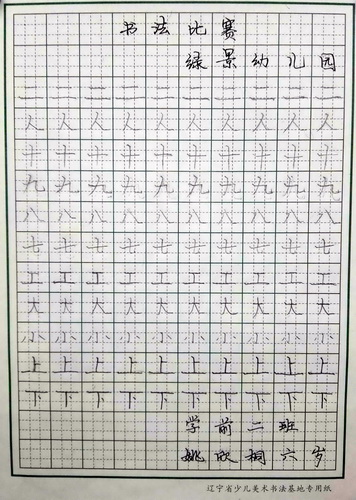 书法比赛
绿景幼儿园
二二二二二二二二二二
人人人人人人人人人人
十十十十十十十十十十
九九九九九九九九九九
八八八八八八八八八八
七七七七七七七七七七
工工工工工工工工工工
大大大大大大大大大大
小小小小小小小小小小
上上上上上上上上上上
下下下下下下下下下下
学前二班
姚欣桐六岁
辽宁省少儿美术书法基地专用纸